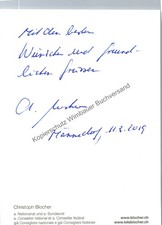 Mit den besten
Wünschen und freund-
lichen Grüssen
Kopierschutz Wimbauer Buchversand
Männedorf, 11.3.2019
Christoph Blocher
a. Nationalrat und a. Bundesrat
a. Conseiller national et a. Conseiller fédéral
già Consigliere nazionale e già Consigliere federale
www.blocher.ch
www.teleblocher.ch